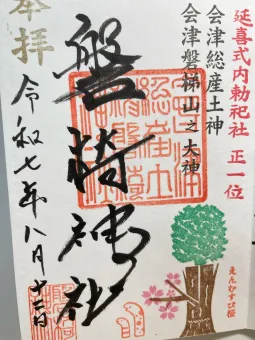 延喜式内勅祀社 正一位
会津総産土神
会津磐梯山之大神
奉拝
盤椅神社
令和七年八月十二日
えんむすび桜